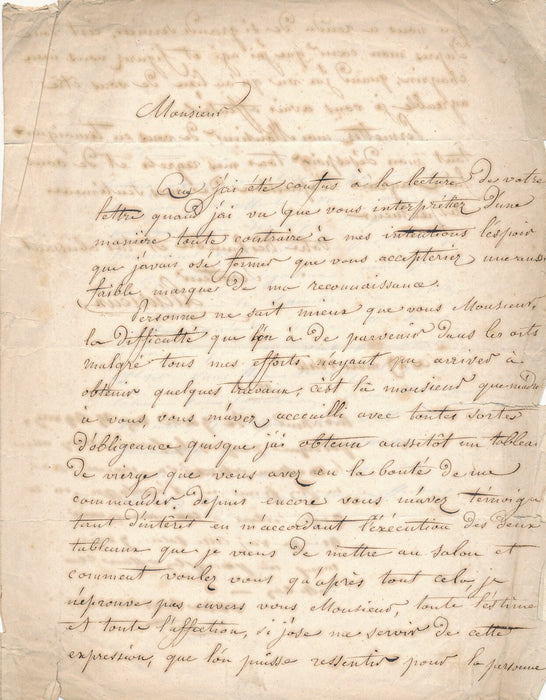 Monsieur
Que j'ai été confus à la lecture de votre
lettre quand j'ai vu que vous interpretiez d'une
manière toute contraire à mes intentions l'espoir
que j'avais osé former que vous accepteriez une
faible marque de ma reconnaissance.
Personne ne sait mieux que vous Monsieur,
la difficulté que l'on à de parvenir dans les arts
malgré tous mes efforts n'ayant pu arriver à
obtenir quelques travaux, c'est là monsieur que
à vous, vous m'avez acceuilli avec toutes sortes
d'obligeance puisque j'ai obtenu aussitôt un tableau
de vierge que vous avez eu la bonté de me
commander depuis encore vous m'avez témoigné
tant d'intérêt en m'accordant l'éxécution des deux
tableaux que je viens de mettre au salon et
comment voulez vous qu'après tout cela je
n'éprouve pas envers vous Monsieur, toute l'estime
et toute l'affection, si j'ose me servir de cette
expression, que l'on puisse ressentir pour la personne